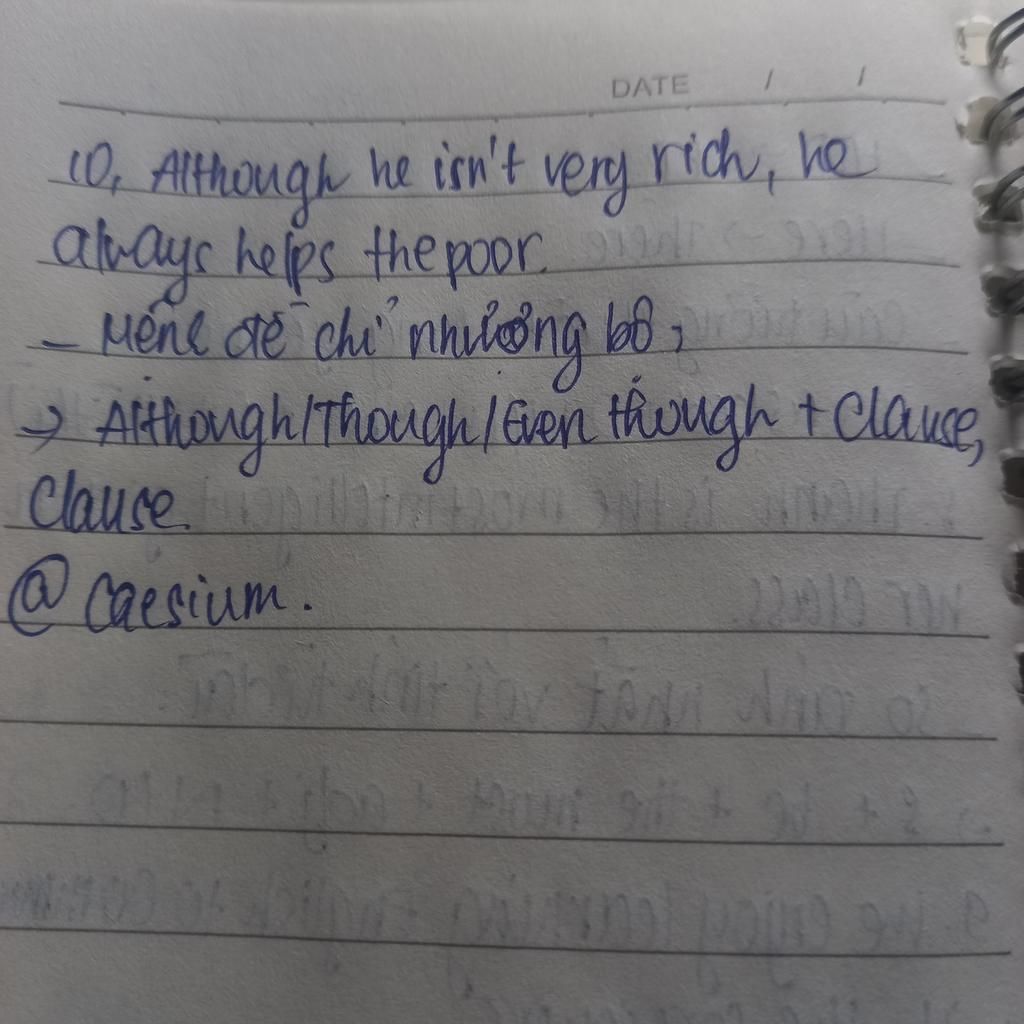 DATE / /
10, Although he isn't very rich, he
always helps the poor.
- Mệnh đề chỉ nhượng bộ:
→ Although/Though/Even though + Clause,
Clause
@ Caesium.